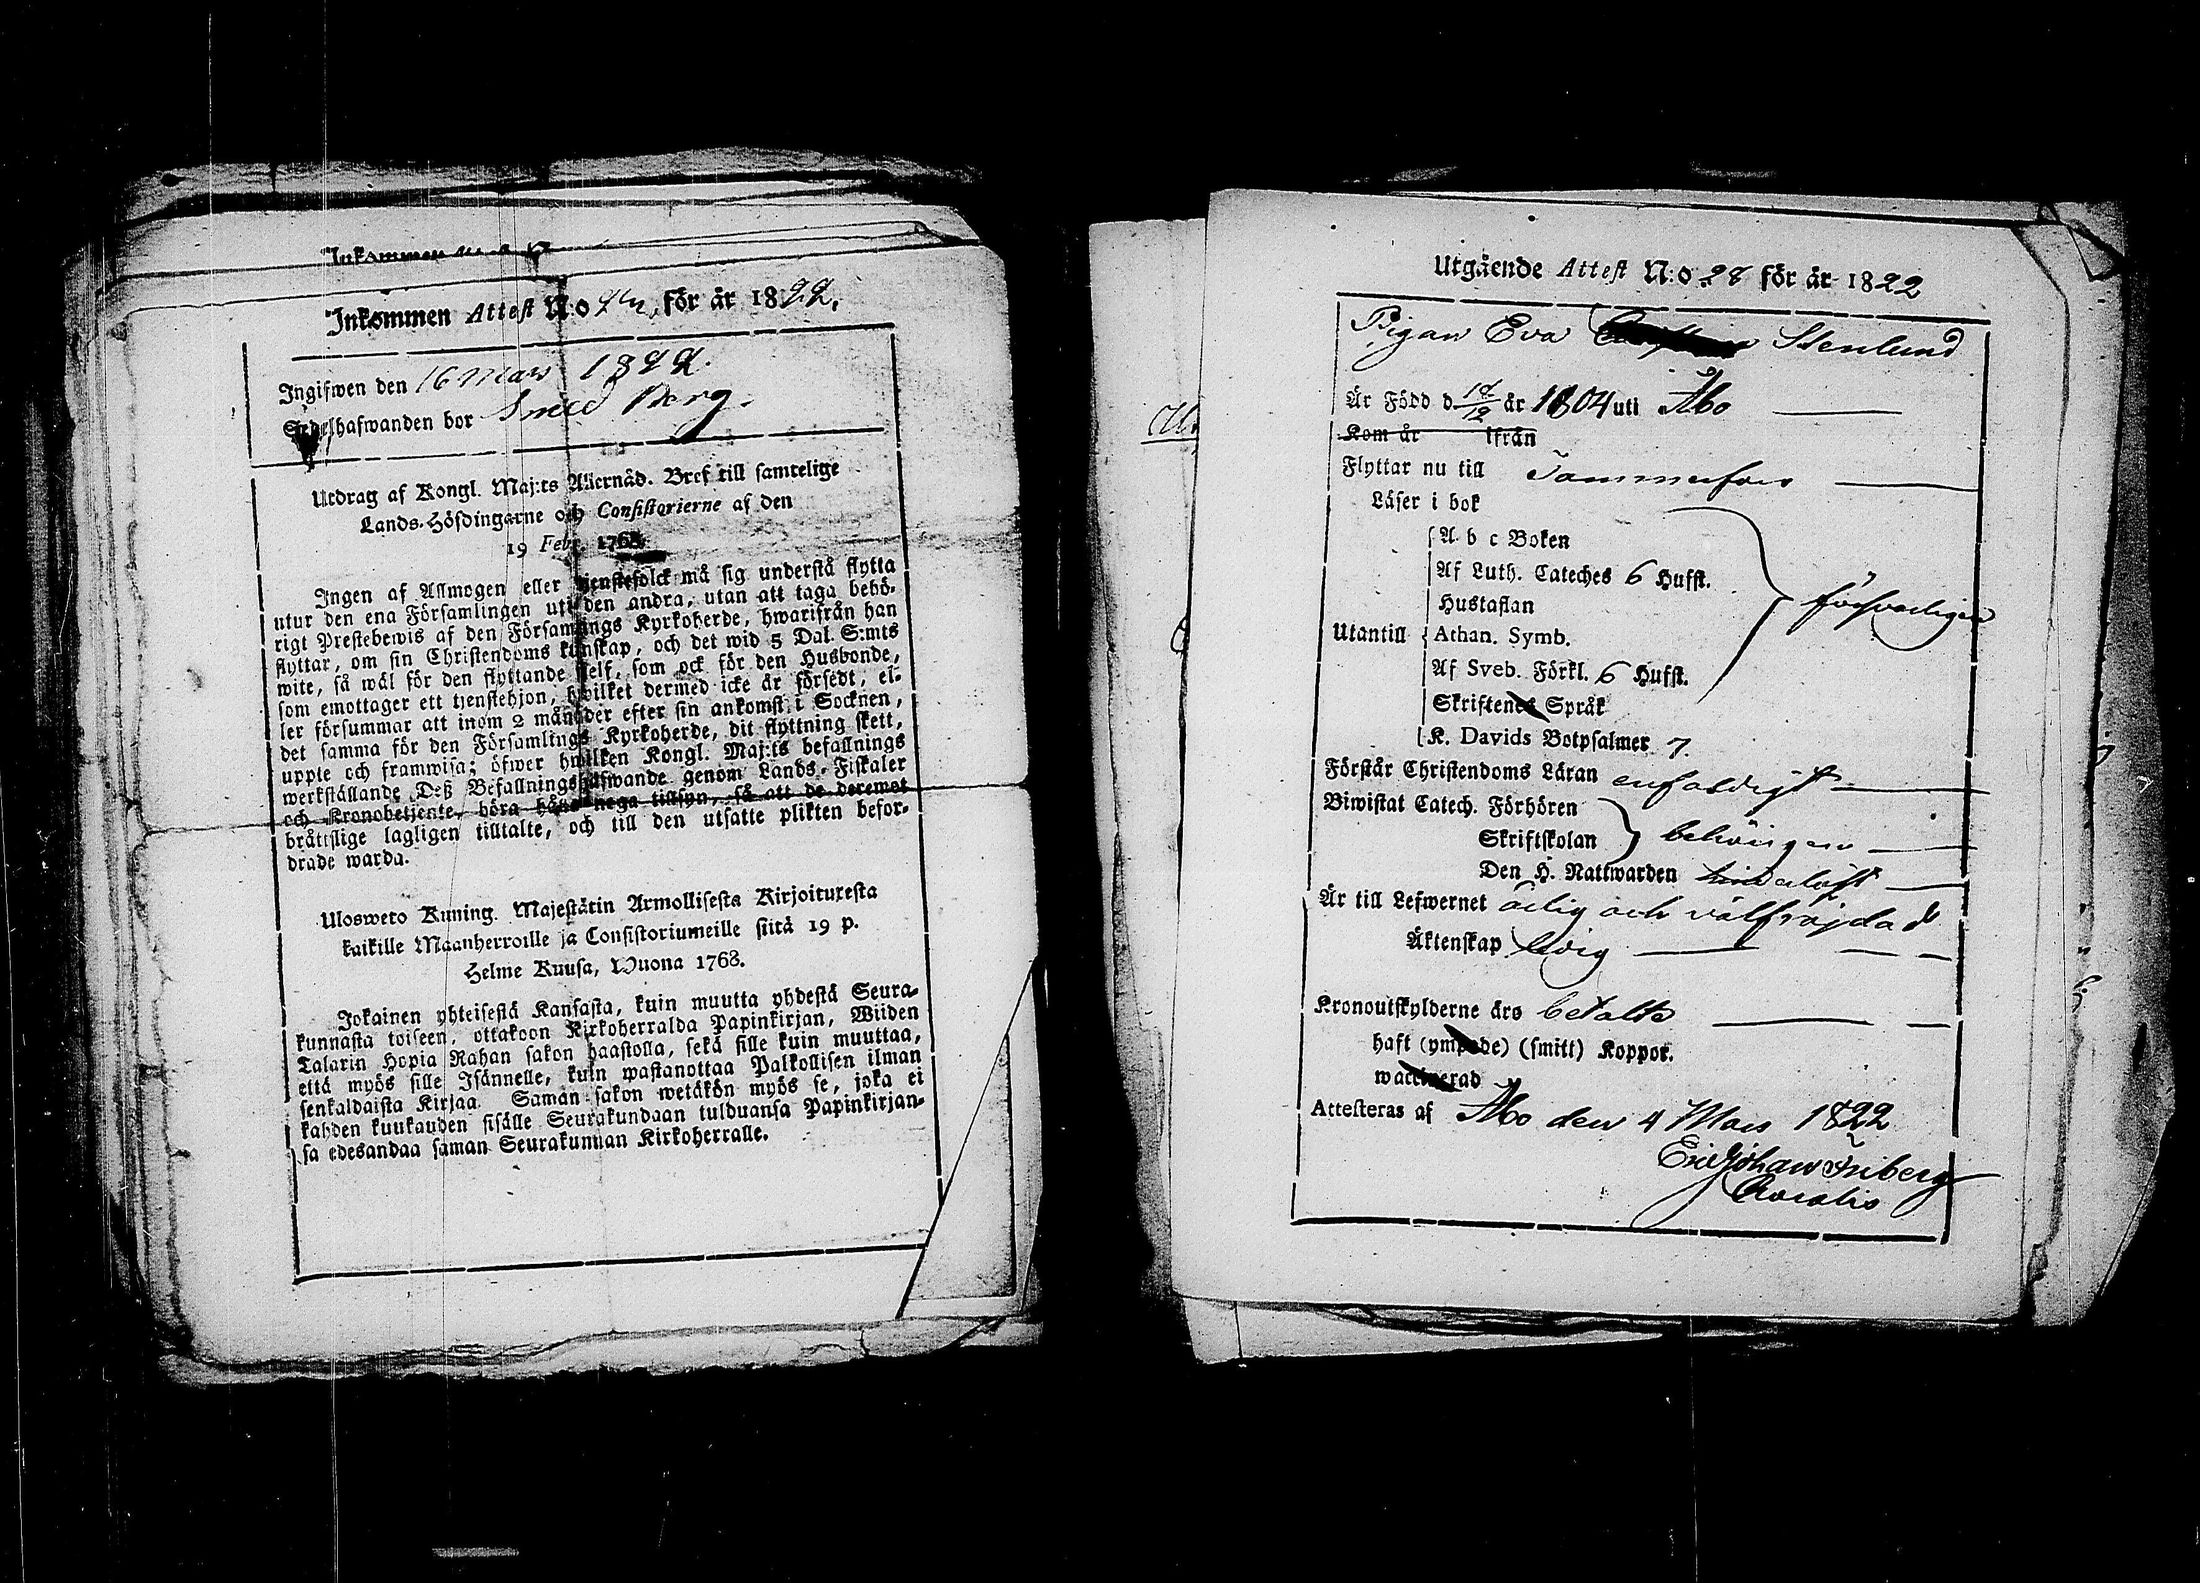 Inkommen Attest N:o för år 1822.
Ingifwen den 16 Mars 1822.
Sedelhafwanden bor Smed Berg.
Utdrag af Kongl. Maj:ts Allernåd. Bref till samtelige
Lands-Höfdingarne och Consistorierne af den
19 Febr. 1768.
Ingen af Allmogen eller tjenstefolck må sig understå flytta
utur den ena Församlingen uti den andra, utan att taga behö-
rigt Prestebewis af den Församlings Kyrkoherde, hwarifrån han
flyttar, om sin Christendoms kunskap, och det wid 5 Dal. S:mts
wite, så wäl för den flyttande sielf, som ock för den Husbonde,
som emottager ett tjenstehjon, hwilket dermed icke är försedt, el-
ler försummar att inom 2 månader efter sin ankomst i Socknen,
det samma för den Församlings Kyrkoherde, dit flyttning skett,
uppte och framwisa; öfwer hwilken Kongl. Maj:ts befallnings
werkställande Deß Befallningshafwande genom Lands-Fiskaler
och Kronobetjente, böra hafwa noga tillsyn, så att de deremot
bråttslige lagligen tilltalte, och till den utsatte plikten befor-
drade warda.
Ulosweto Kuning. Majestätin Armollisesta Kirjoituresta
kaikille Maanherroille ja Consistoriumeille siitä 19 p.
Helme Kuusa, Wuona 1768.
Jokainen yhteisestä Kansasta, kuin muutta yhdestä Seura-
kunnasta toiseen, ottakoon Kirkoherralda Papinkirjan, Wiiden
Talarin Hopia Rahan sakon haastolla, sekä sille kuin muuttaa,
että myös sille Isännelle, kuin wastanottaa Palkollisen ilman
senkaldaista Kirjaa. Saman sakon wetäkön myös se, joka ei
kahden kuukauden sisälle Seurakundaan tulduansa Papinkirjan-
sa edesandaa saman Seurakunnan Kirkoherralle.
Utgående Attest N:o 28 för år 1822
Pigan Eva Stenlund
Är Född d 18/12 år 1804 uti Åbo
Kom år ifrån
Flyttar nu till Tammerfors
Läser i bok
A b c Boken
Af Luth. Cateches 6 Hufst.
Hustaflan
försvarligen
Utantill Athan. Symb.
Af Sveb. Förkl. 6 Hufst.
Skriftenes Språk
K. Davids Botpsalmer 7.
Förstår Christendoms Läran enfaldigt
Biwistat Catech. Förhören
Skriftskolan behörigen
Den H. Nattwarden hinderlöst
Är till Lefwernet ärlig och välfrejdad
Äktenskap ledig
Kronoutskylderne äro betalte
haft (ympade) (smitt) Koppor.
waccinerad
Attesteras af Åbo den 4 Mars 1822
Eric Johan Friberg